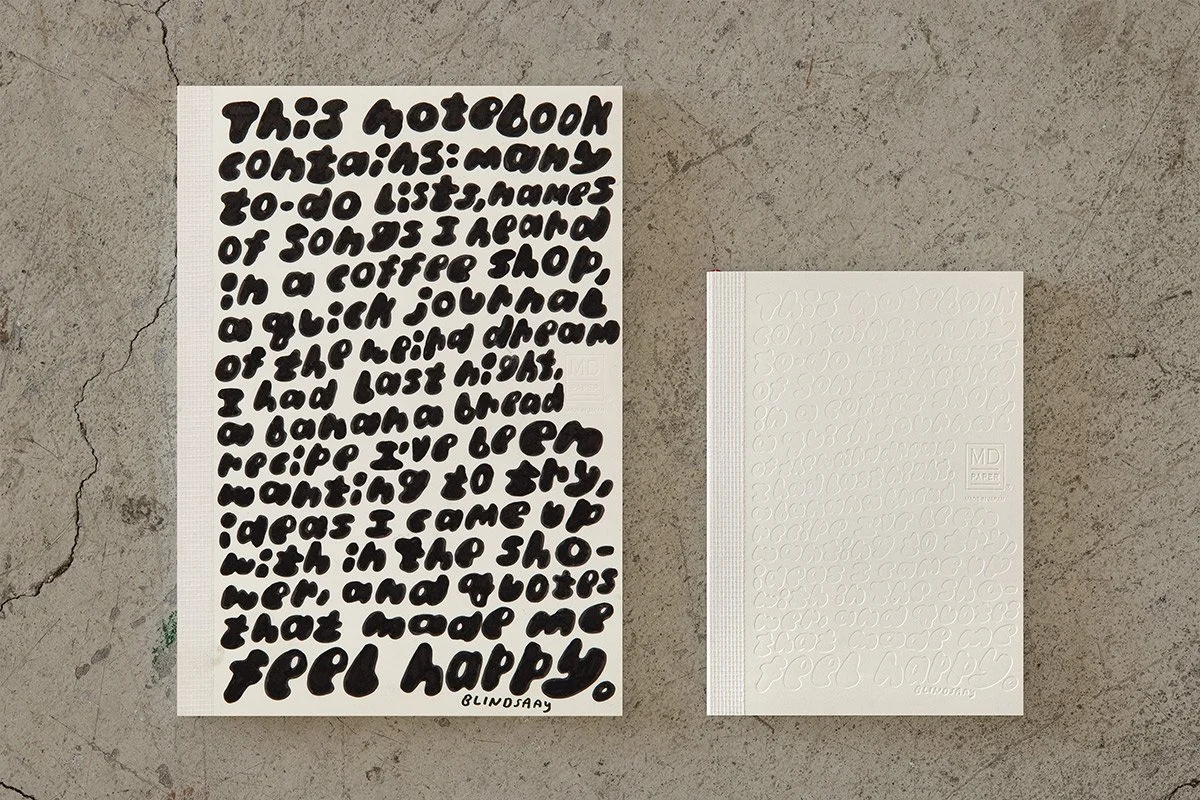 This notebook
contains: many
to-do lists, names
of songs I heard
in a coffee shop,
a quick journal
of the weird dream
I had last night,
a banana bread
recipe I've been
wanting to try,
ideas I came up
with in the sho-
wer, and quotes
that made me
feel happy.
BLINDSAAY
MD
PAPER
This notebook
contains: many
to-do lists, names
of songs I heard
in a coffee shop,
a quick journal
of the weird dream
I had last night,
a banana bread
recipe I've been
wanting to try,
ideas I came up
with in the sho-
wer, and quotes
that made me
feel happy.
BLINDSAAY
MD
PAPER
MADE IN JAPAN